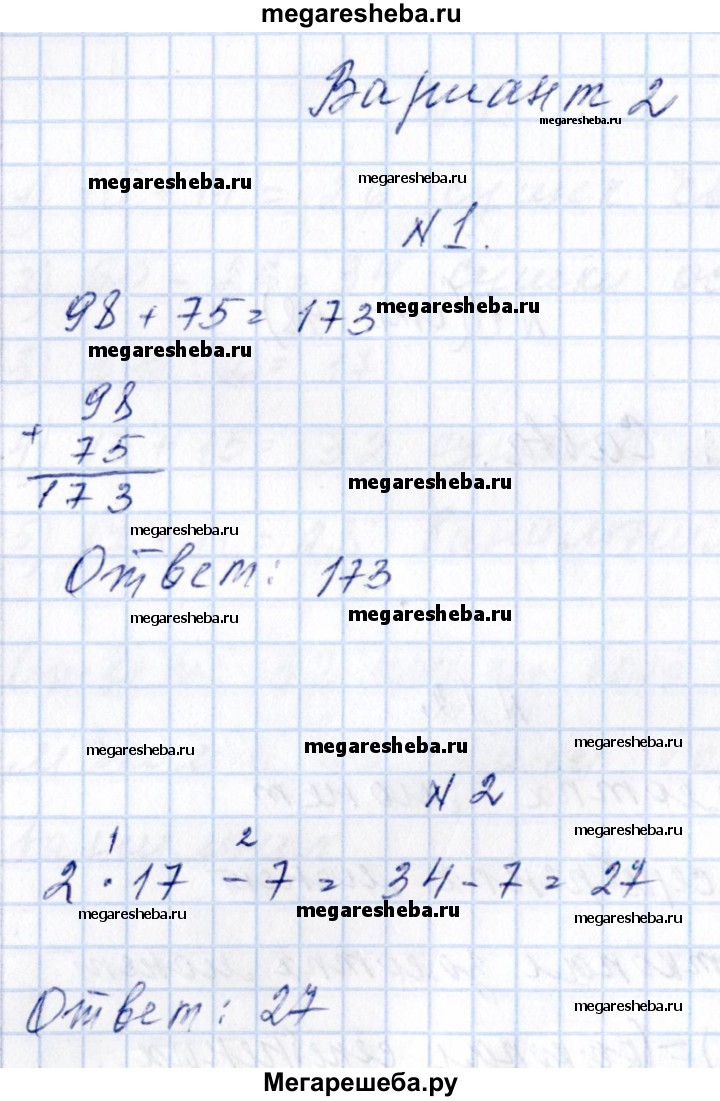 megaresheba.ru
Вариант 2
megaresheba.ru
megaresheba.ru
megaresheba.ru
N 1.
98 + 75 = 173
megaresheba.ru
megaresheba.ru
98
+ 75
173
megaresheba.ru
megaresheba.ru
Ответ: 173
megaresheba.ru
megaresheba.ru
megaresheba.ru
megaresheba.ru
megaresheba.ru
N 2
megaresheba.ru
1 2
2 · 17 - 7 = 34 - 7 = 27
megaresheba.ru
megaresheba.ru
megaresheba.ru
Ответ: 27
megaresheba.ru
Мегарешеба.ру